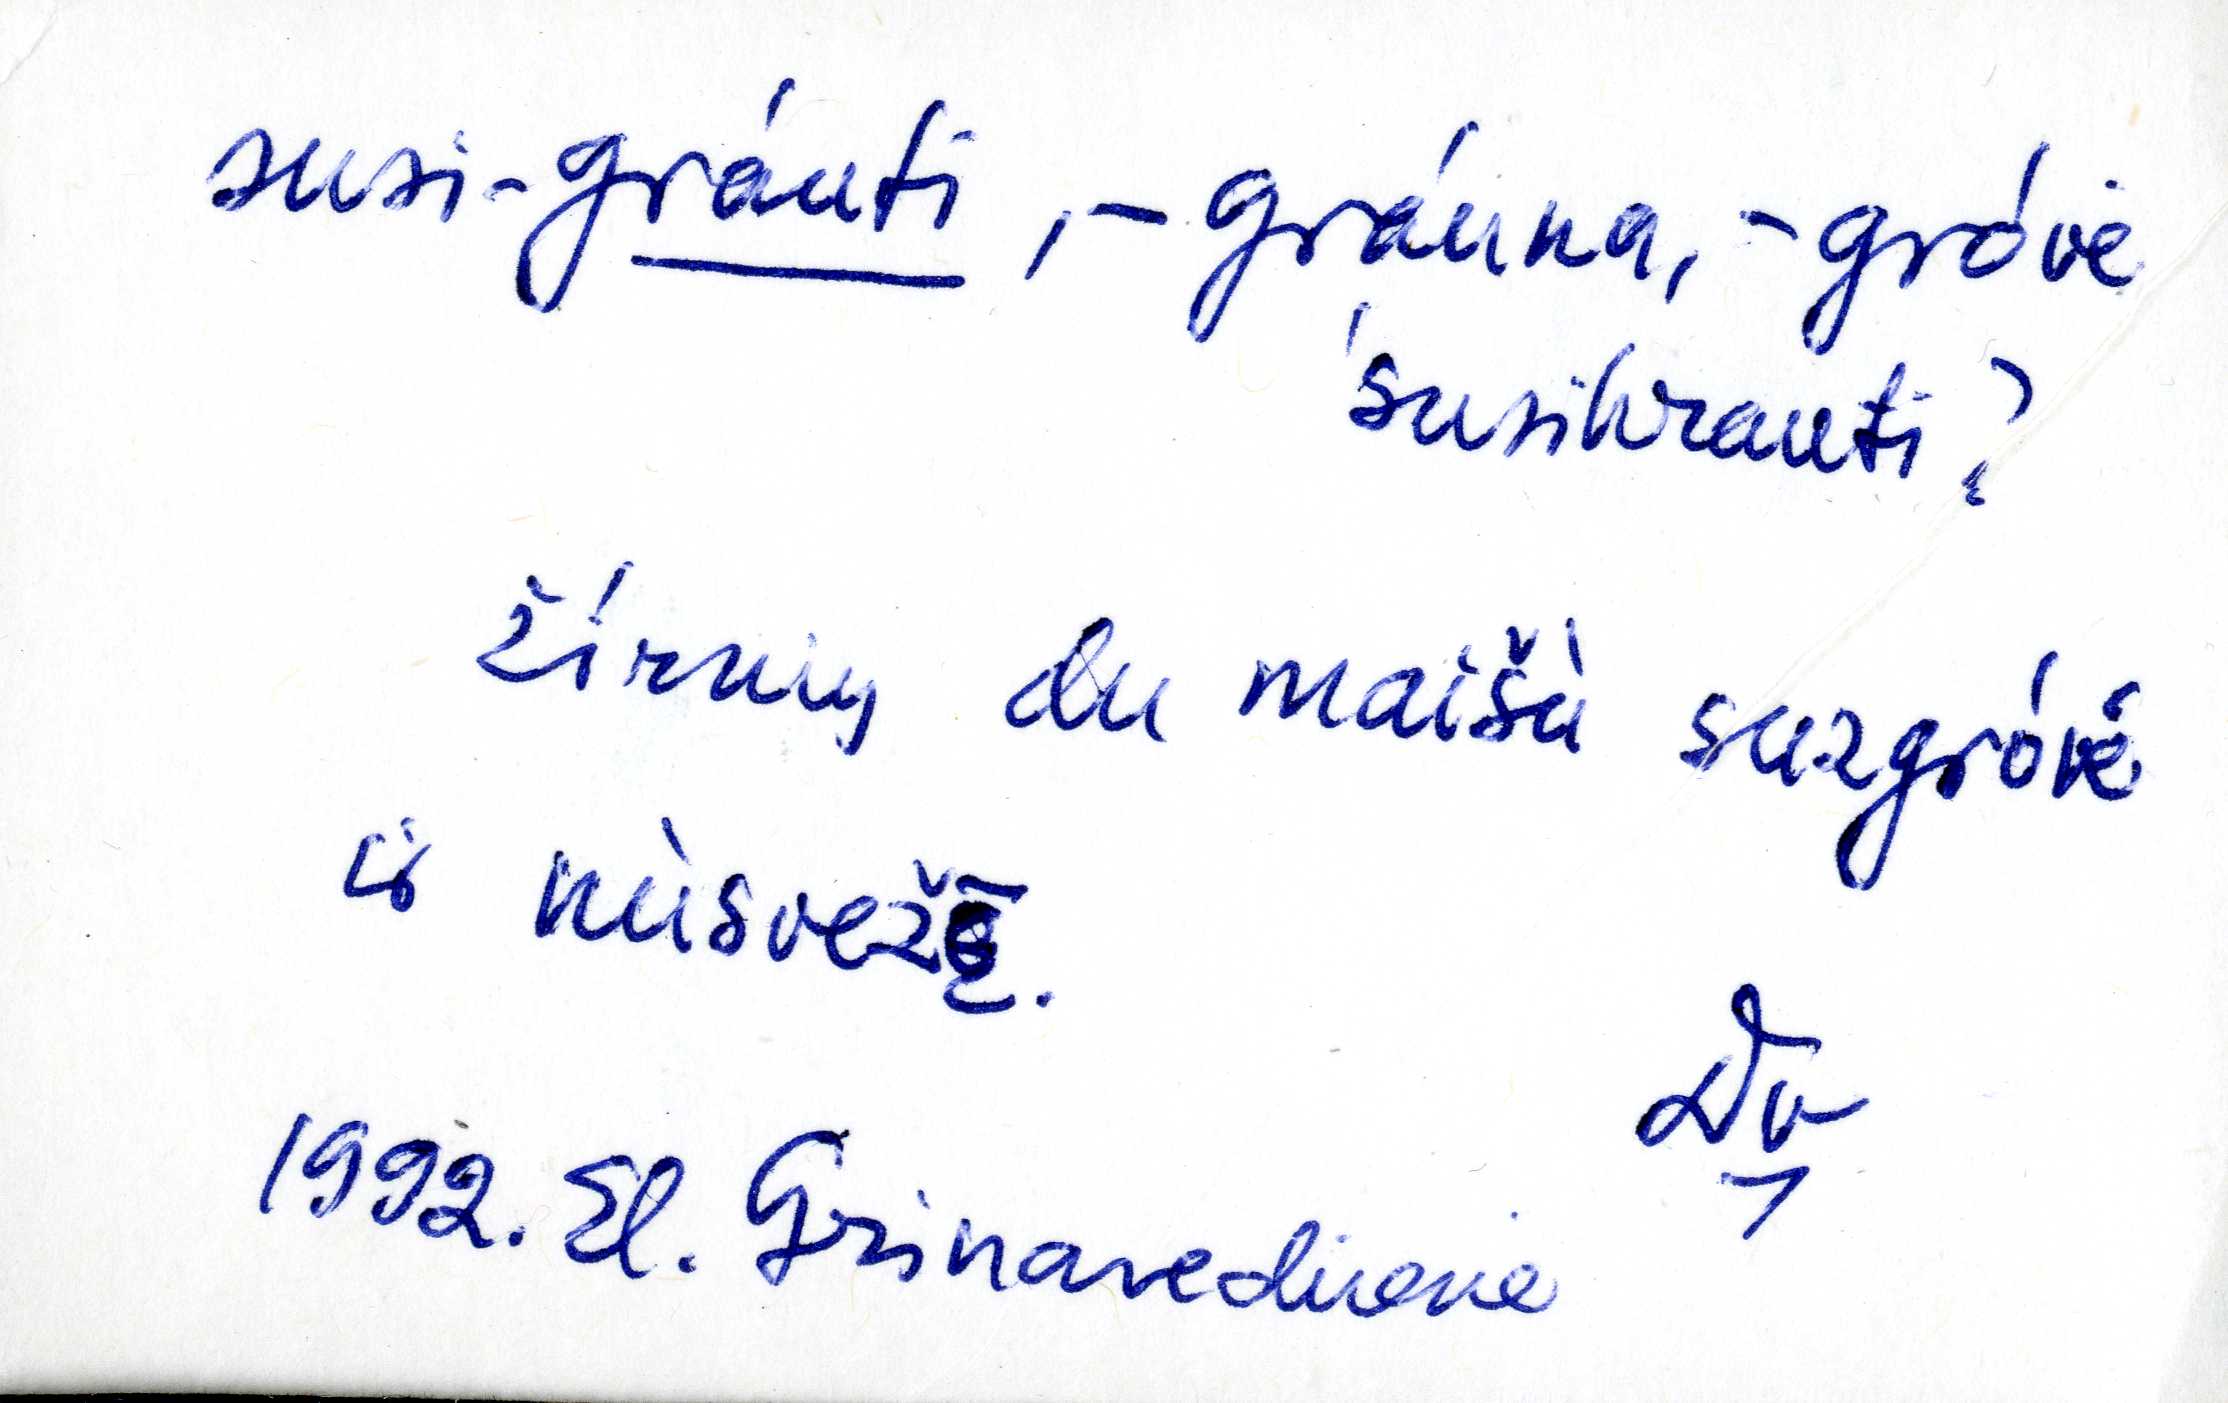 susi-gráuti, -gráuna, -gróvė
'susikrauti?
žírnių du maišù suzgróvė
ir nùsvežẽ.
Dv
1992. El. Grinaveckienė